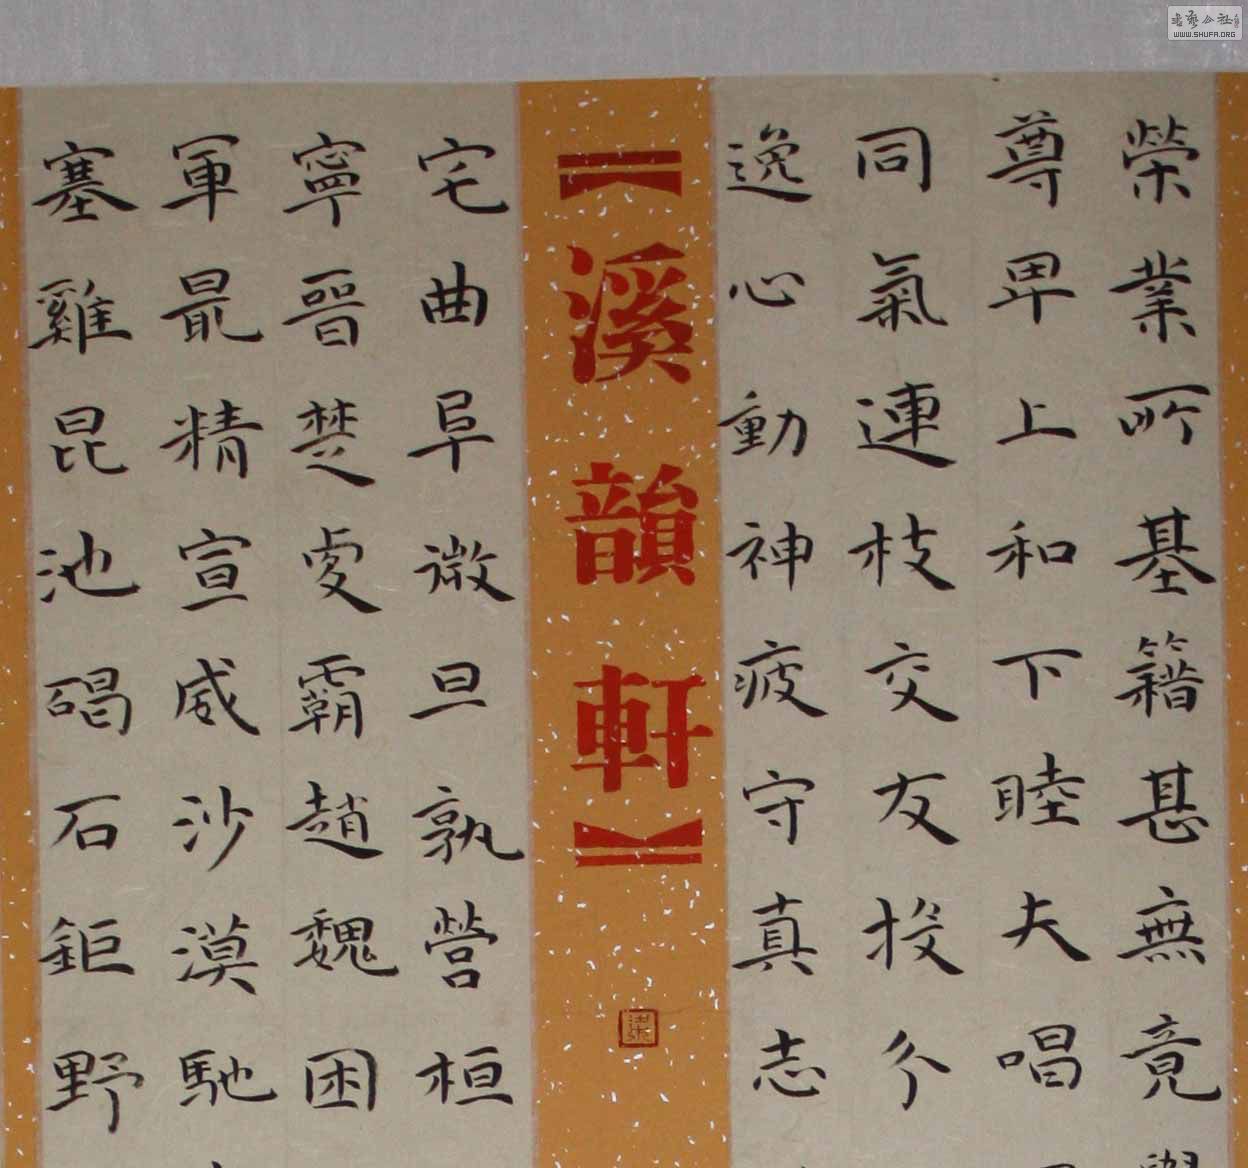 榮業所基籍甚無竟
尊卑上和下睦夫唱
同氣連枝交友投分
逸心動神疲守真志
【溪韻軒】
宅曲阜微旦孰營桓
寧晉楚更霸趙魏困
軍最精宣威沙漠馳
塞雞昆池碣石鉅野
WWW.SHUFA.ORG